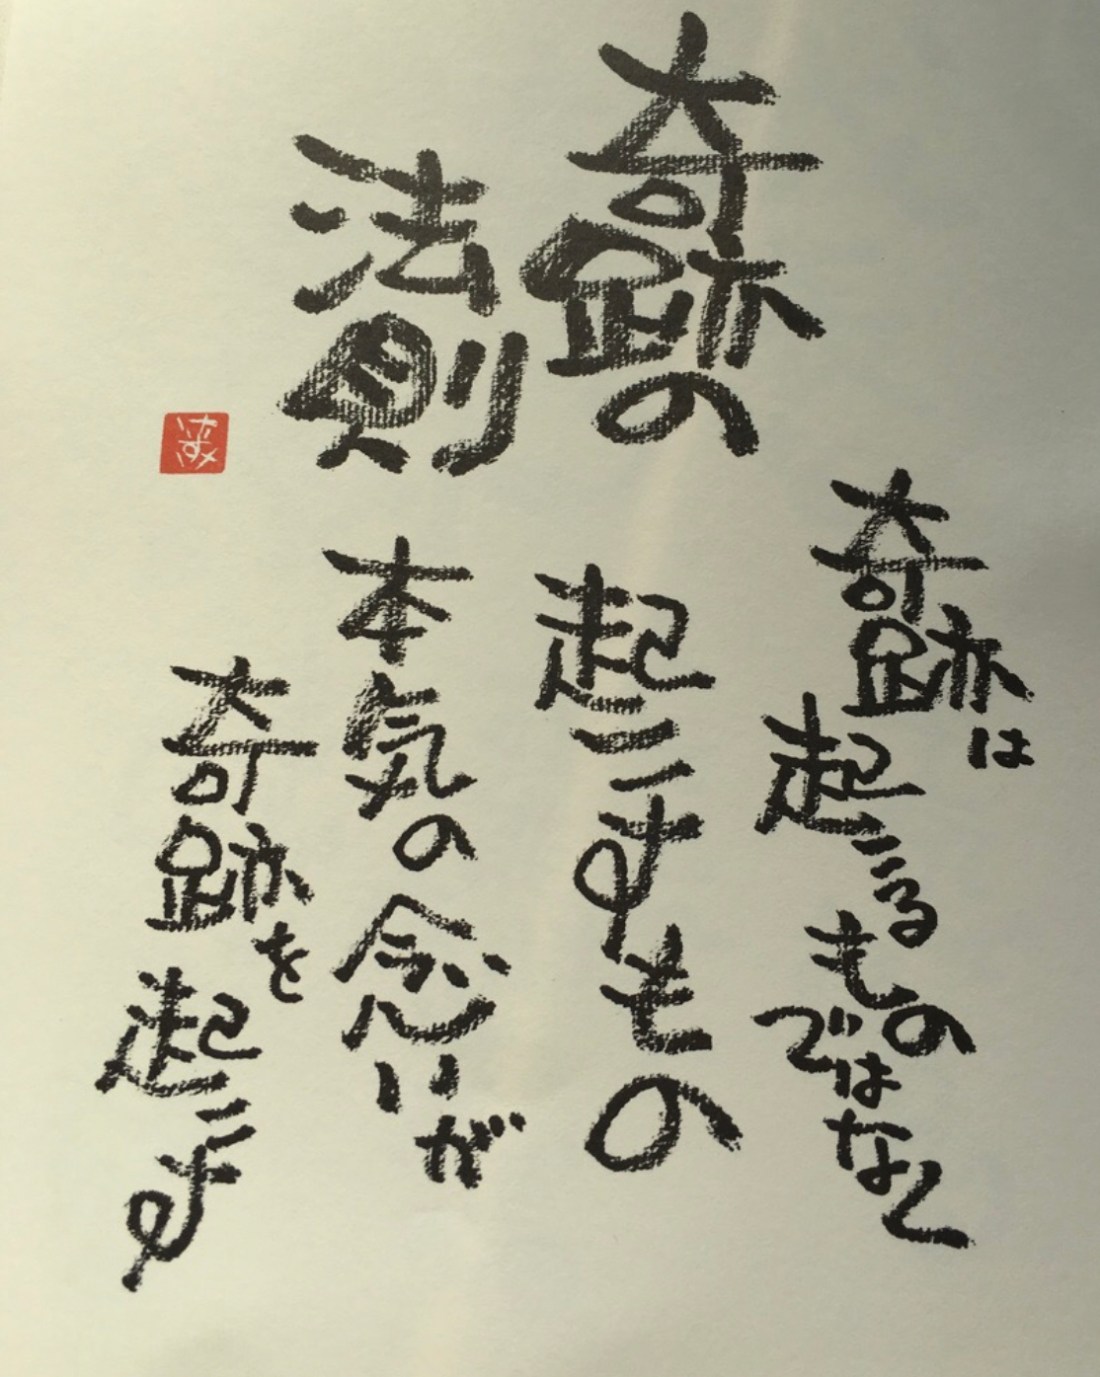 奇跡の
法則
奇跡は
起こるもの
ではなく
起こすもの
本気の念いが
奇跡を
起こす